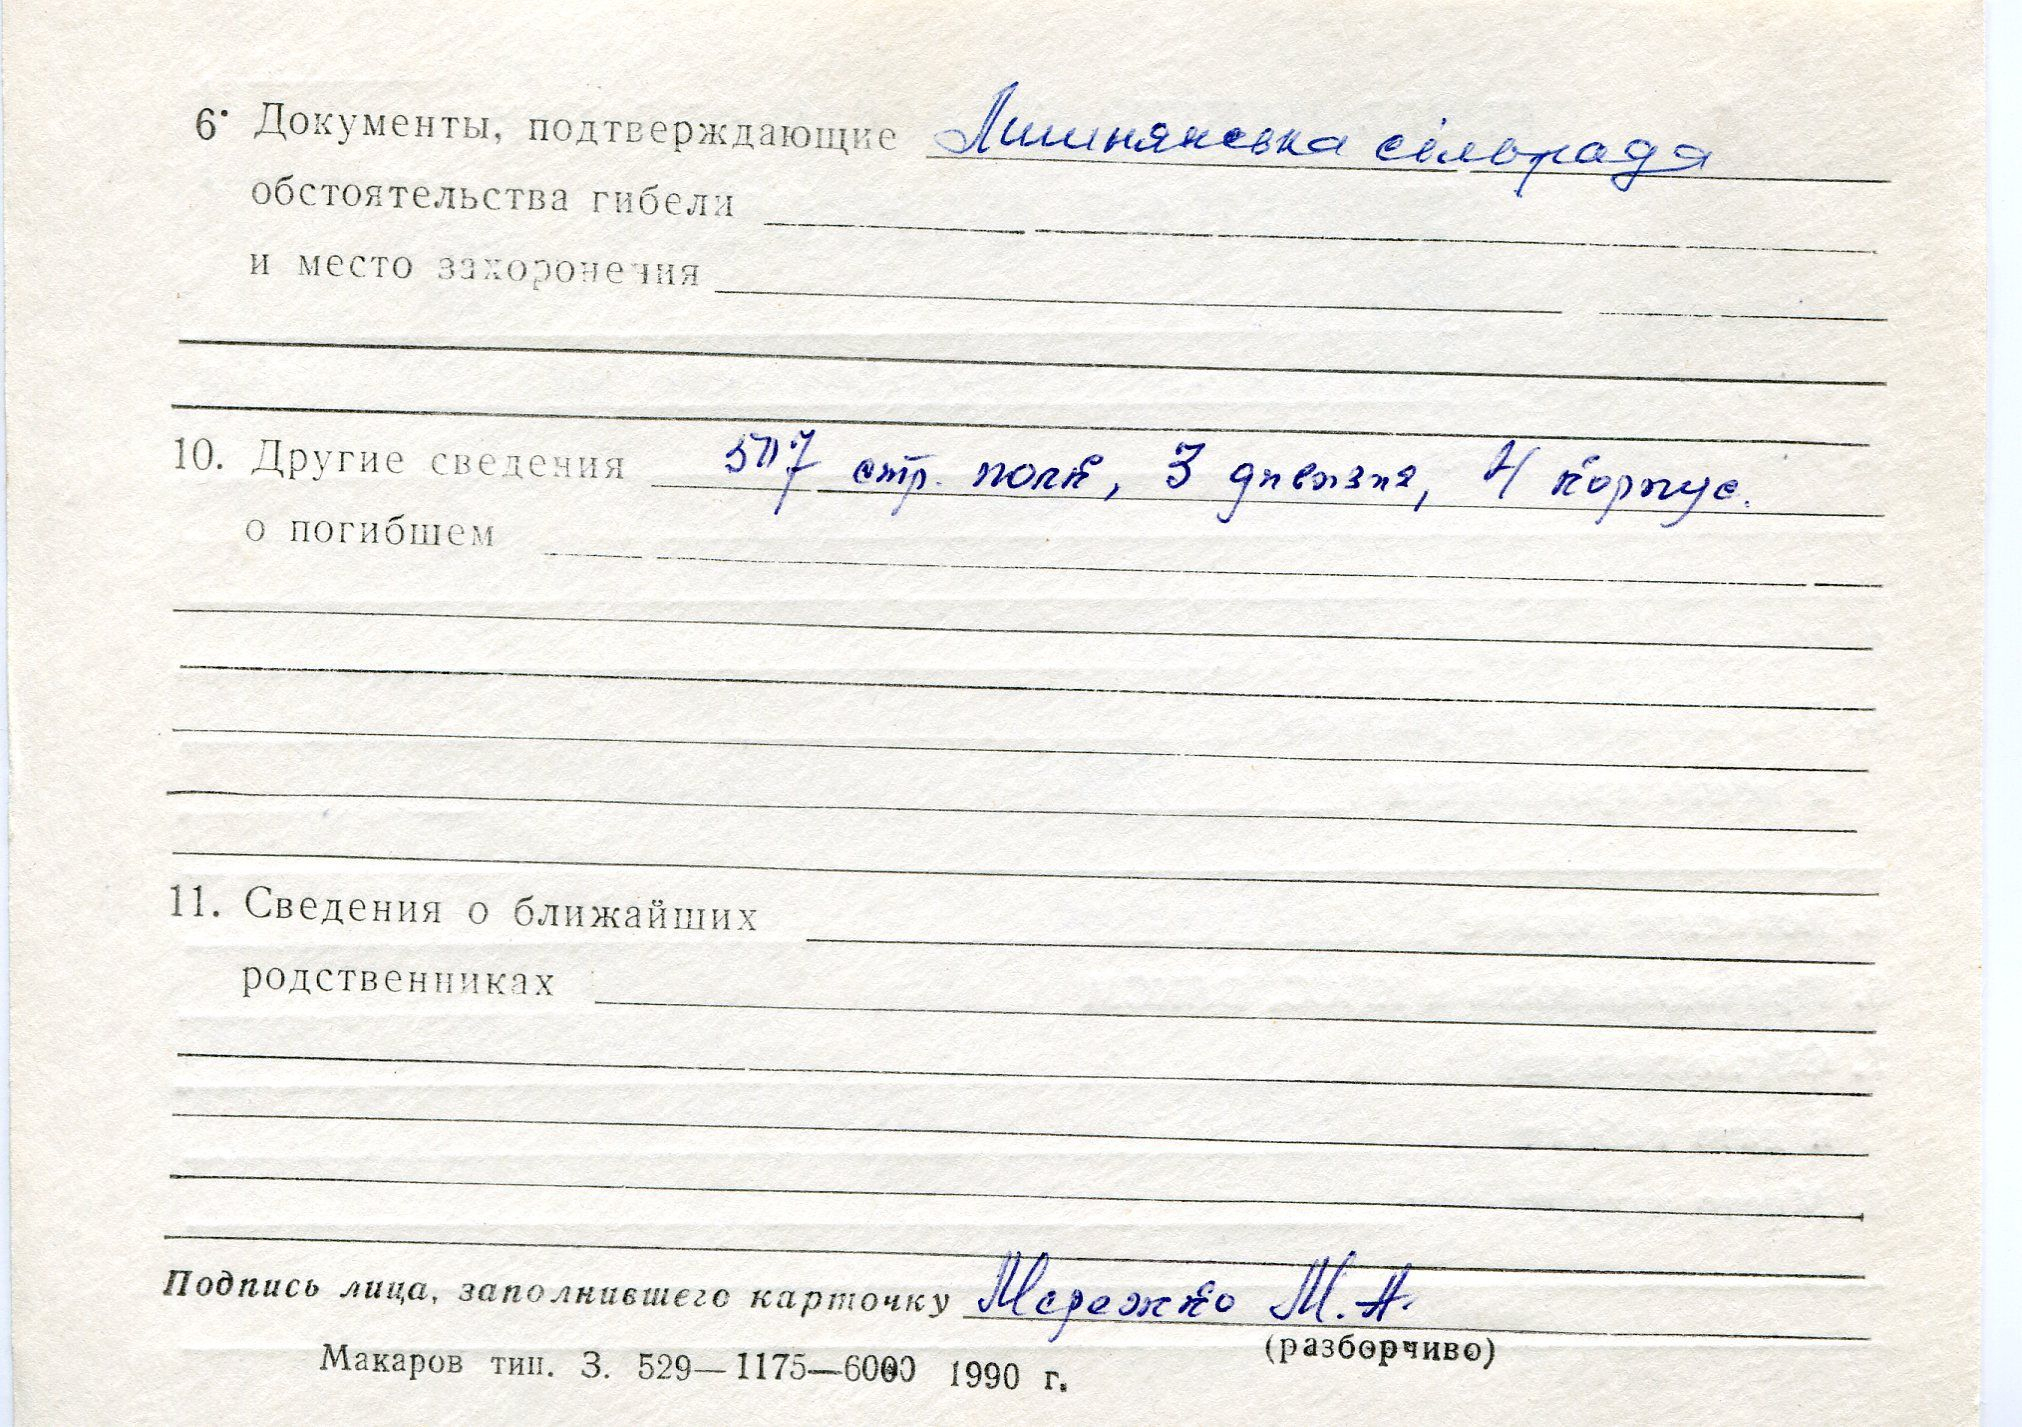 6. Документы, подтверждающие Лишнянська сільрада
обстоятельства гибели
и место захоронения
10. Другие сведения стр. полк, 3 дивизия, 4 корпус.
о погибшем
11. Сведения о ближайших
родственниках
Подпись лица, заполнившего карточку Мережко М.А.
(разборчиво)
Макаров тип. З. 529—1175—6000 1990 г.